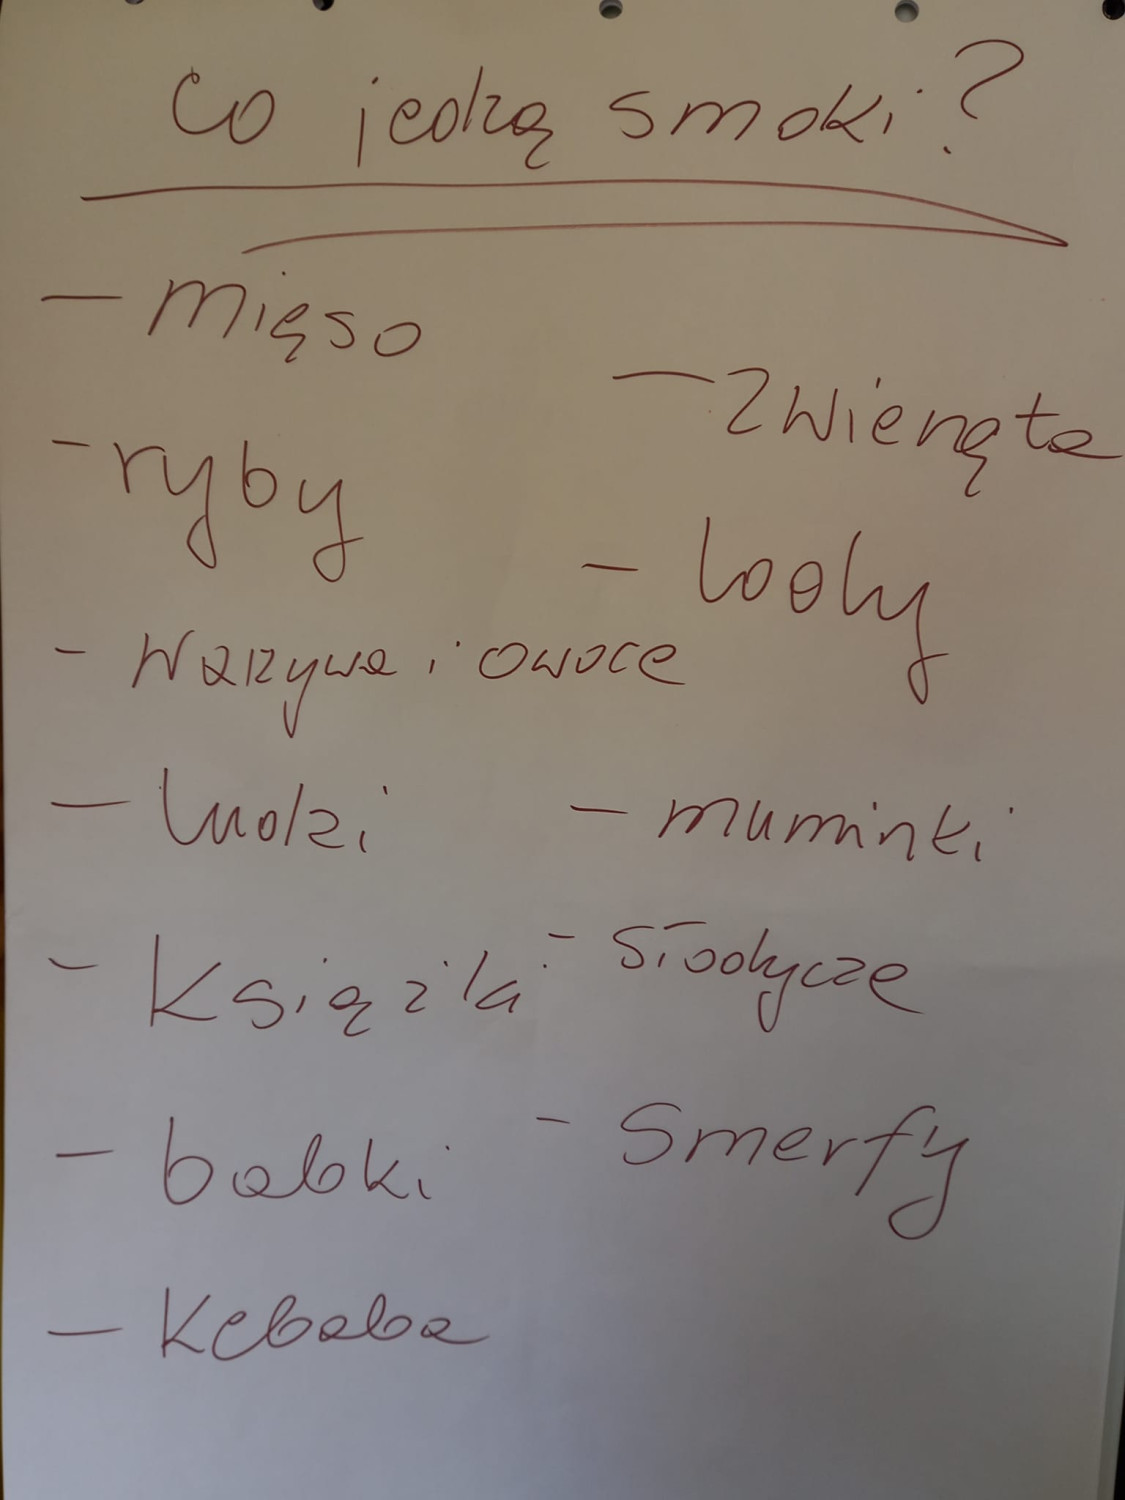 Co jedzą smoki?
- mięso
- ryby
- warzywa i owoce
- ludzi
- książki
- babki
- kebaba
- zwierzęta
- lody
- muminki
- słodycze
- smerfy